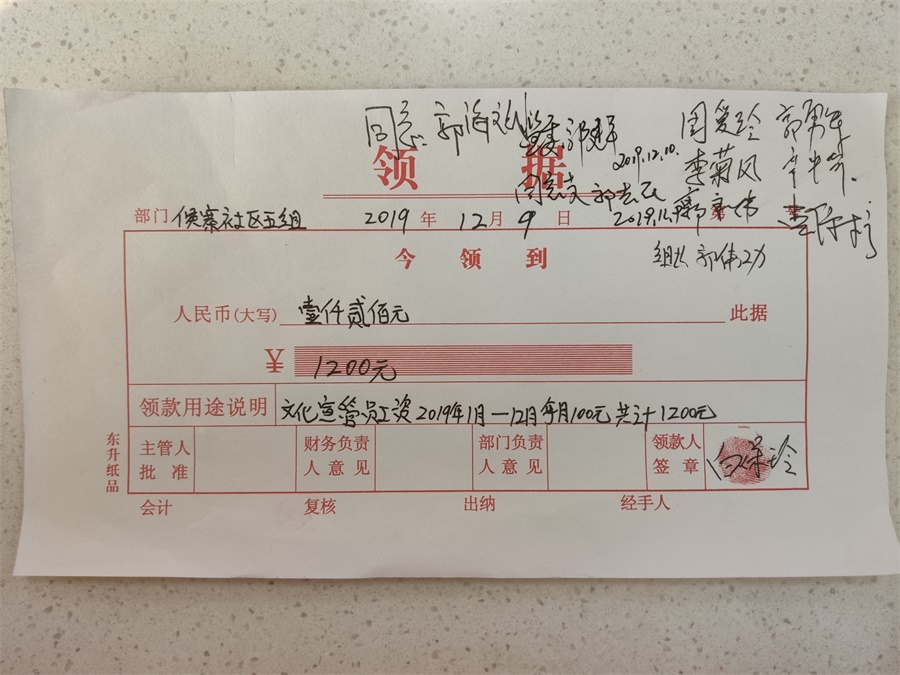 同意 郭海文
周爱玲 郭勇军
2019.12.10.
李菊凤
领 据
部门 侯寨社区五组 2019 年 12 月 9 日
今 领 到
组长 郭伟功
人民币(大写) 壹仟贰佰元 此据
¥ 1200元
领款用途说明 文化宣管员工资2019年1月—12月每月100元共计1200元
东升纸品
主管人批准 财务负责人意见 部门负责人意见 领款人签章 白保玲
会计 复核 出纳 经手人